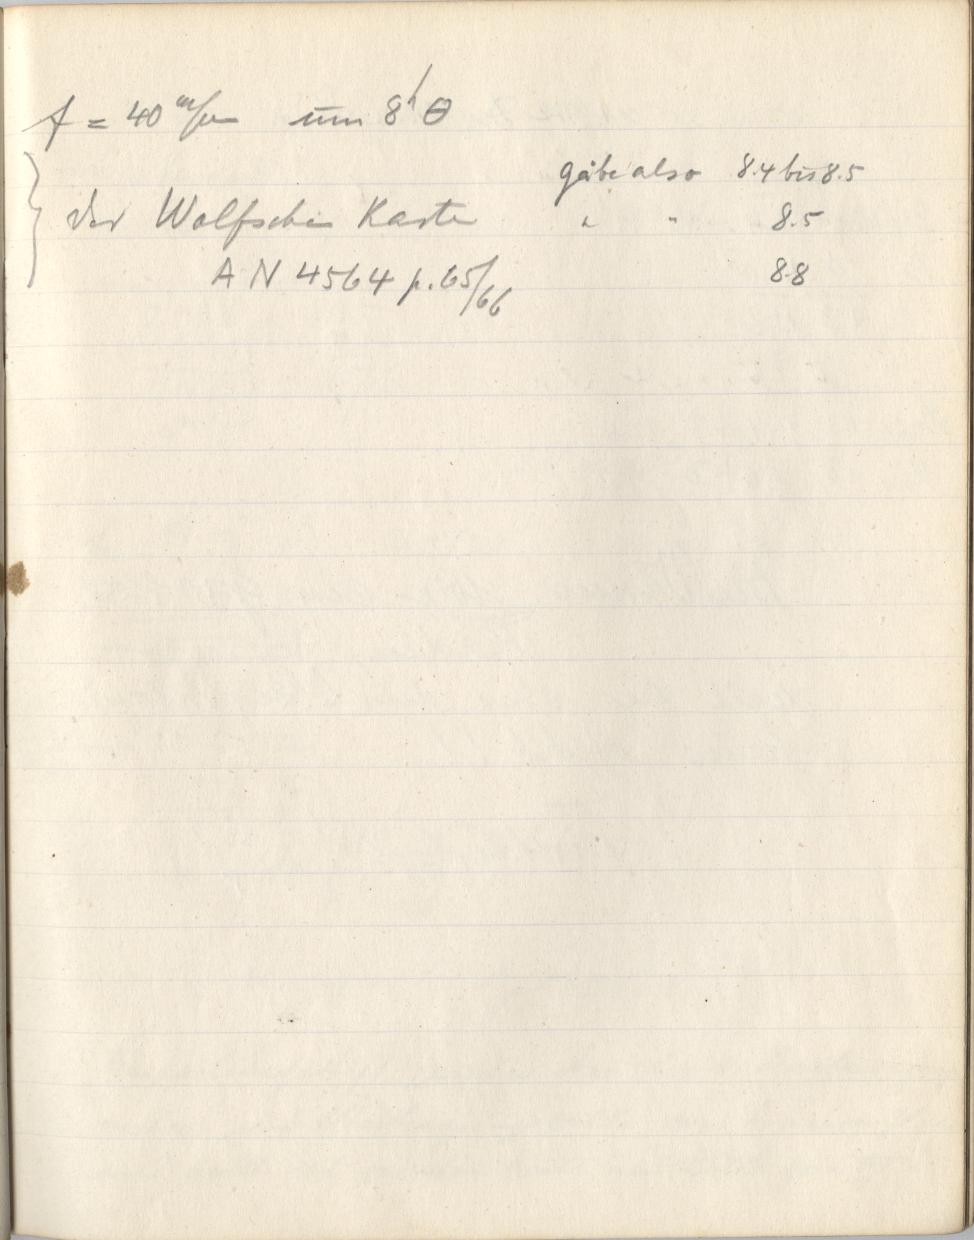 f = 40 m/m um 8h Θ
gäbe also 8.4 bis 8.5
der Wolfschen Karte " " 8.5
A N 4564 p. 65/66 8.8